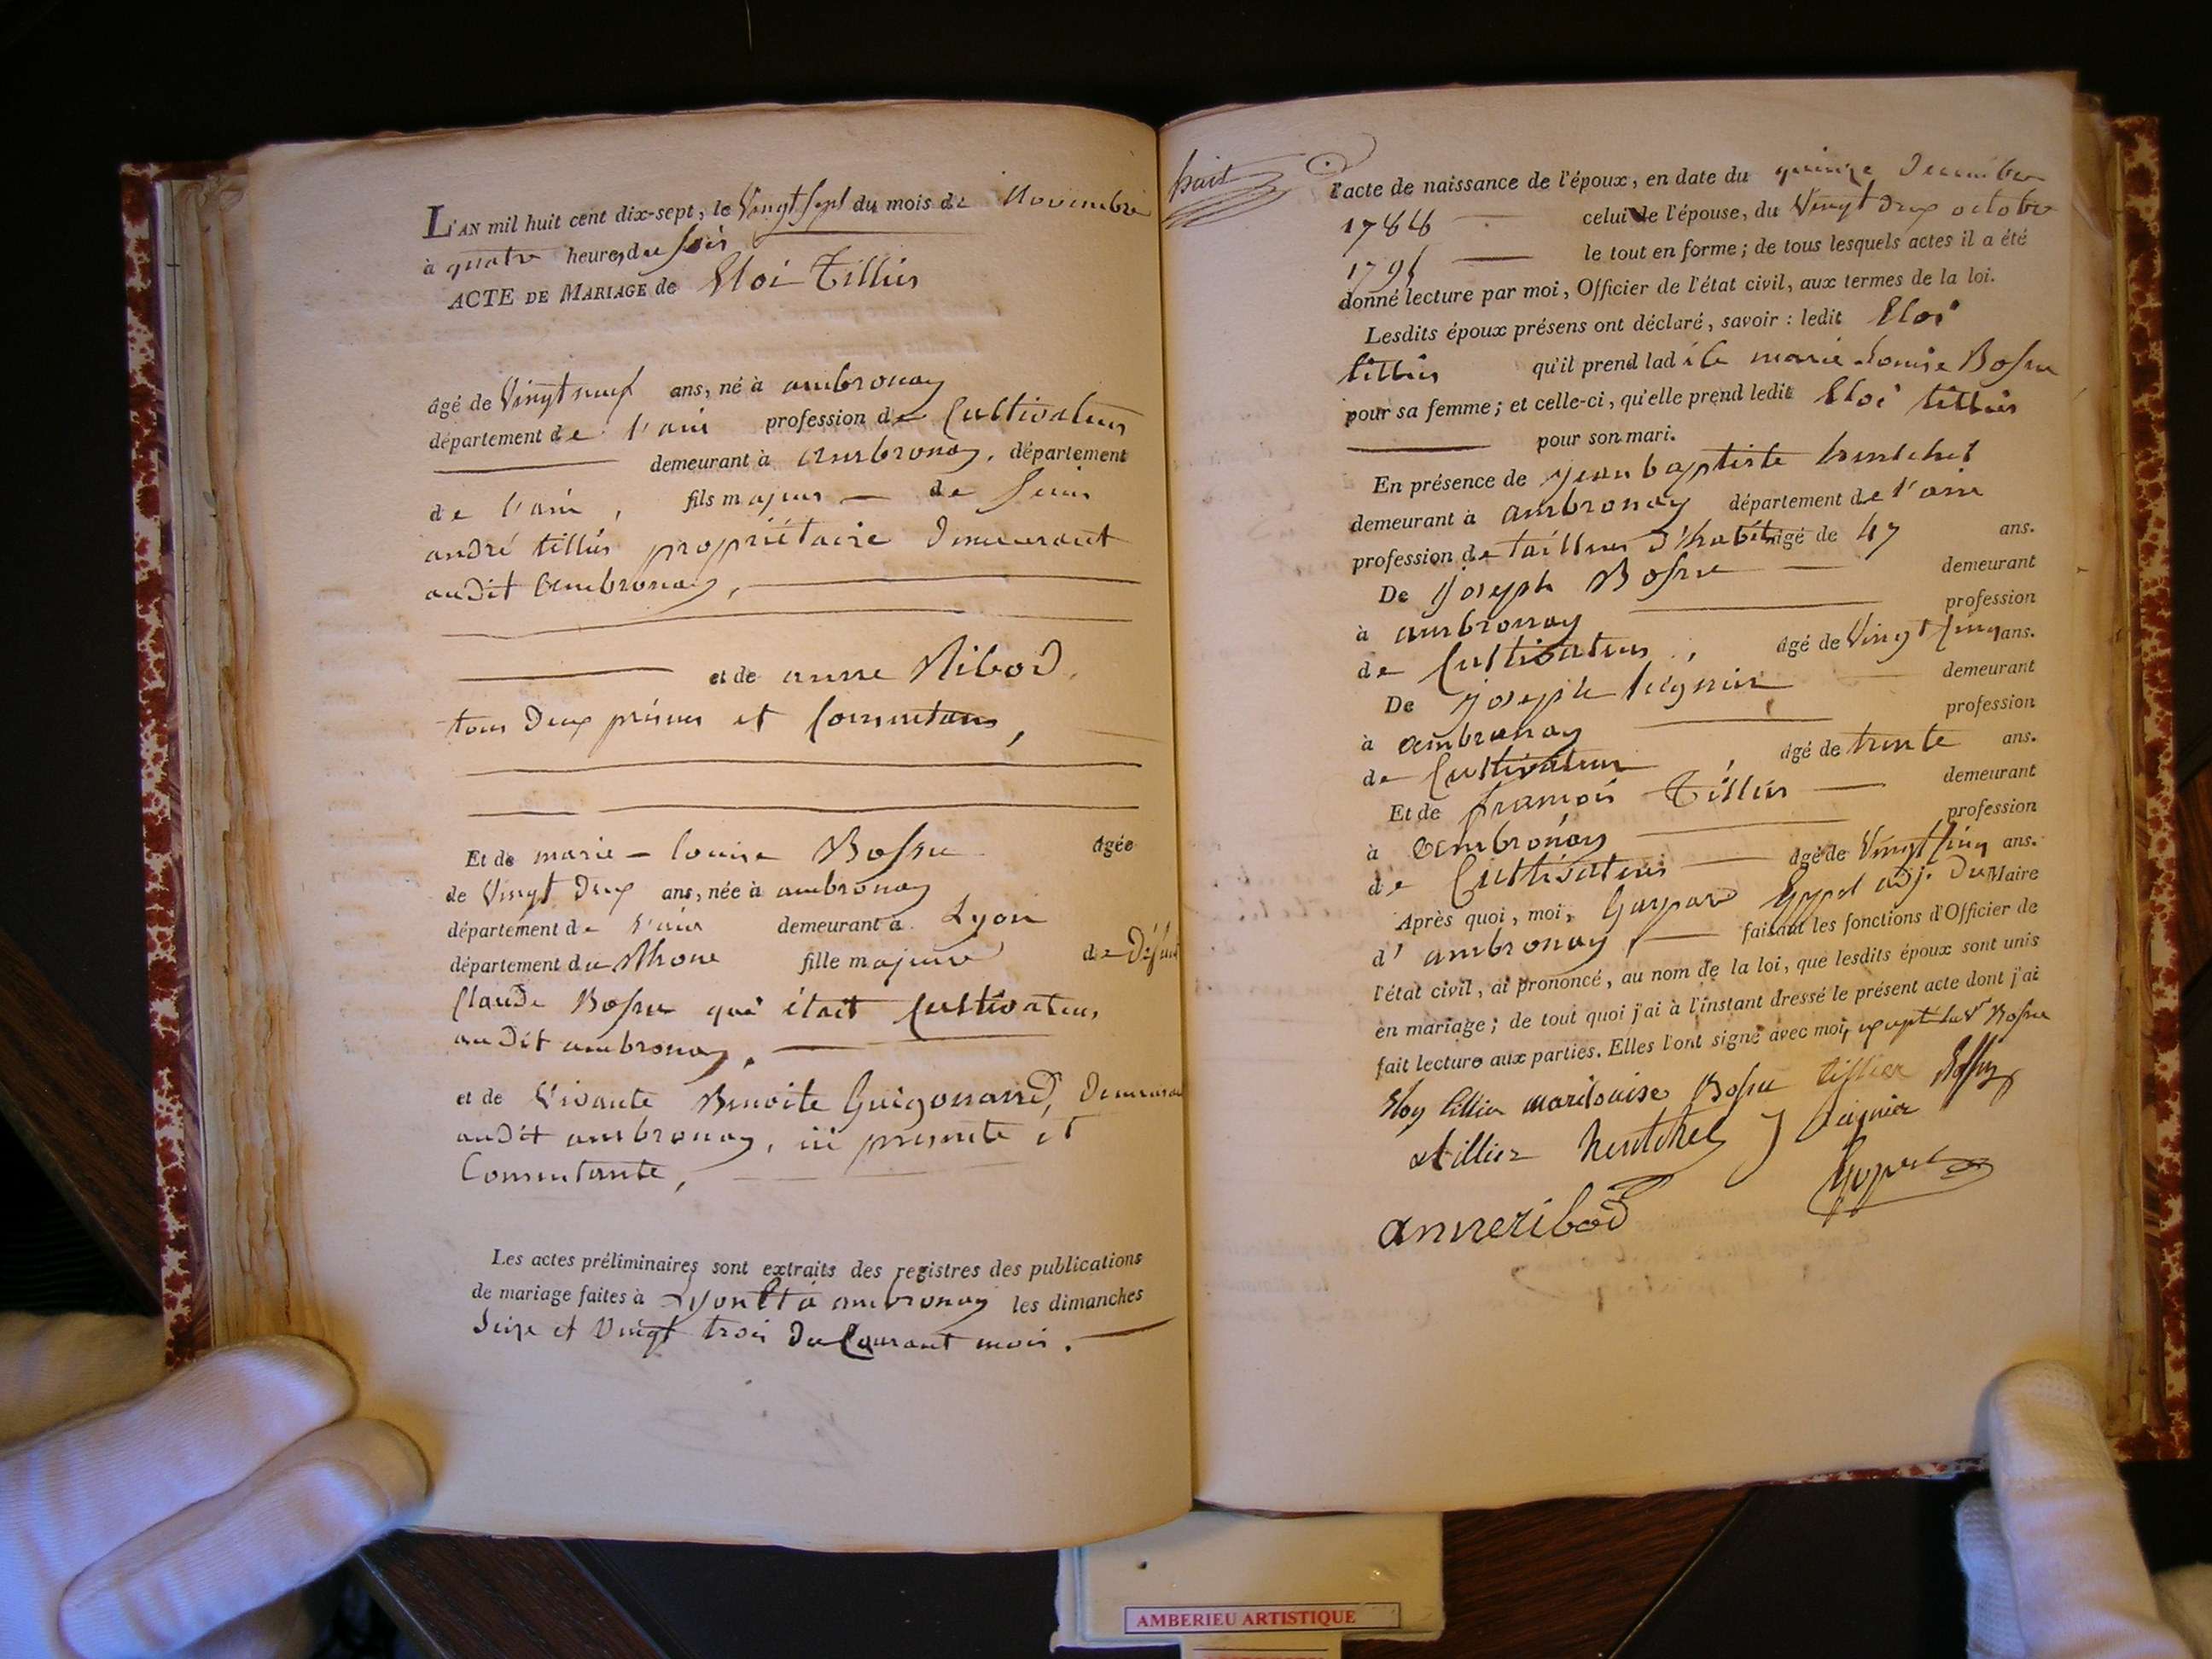 L'AN mil huit cent dix-sept, le Vingt Sept du mois de Novembre
à quatre heures du Soir
ACTE DE MARIAGE de Eloi Tillier
âgé de Vingt neuf ans, né à ambronay
département de l'ain profession de Cultivateur
demeurant à ambronay, département
de l'ain, fils majeur de Sieur
andré tillier propriétaire Demeurant
audit ambronay,
et de anne Ribod,
tous Deux présens et Consentans,
Et de marie-louise Bossu âgée
de Vingt Deux ans, née à ambronay
département de l'ain demeurant à Lyon
département du Rhone fille majeure de Défunt
Claude Bossu qui était Cultivateur
audit ambronay.
et de Vivante Benoite Demeurant
audit ambronay, ici présente et
Consentante,
Les actes préliminaires sont extraits des registres des publications
de mariage faites à Lyon et à ambronay les dimanches
Seize et Vingt trois du Courant mois.
l'acte de naissance de l'époux, en date du quinze Decembre
1788 celui de l'épouse, du Vingt Deux octobre
1795 le tout en forme; de tous lesquels actes il a été
donné lecture par moi, Officier de l'état civil, aux termes de la loi.
Lesdits époux présens ont déclaré, savoir : ledit Eloi
tillier qu'il prend ladite marie Louise Bossu
pour sa femme; et celle-ci, qu'elle prend ledit Eloi tillier
pour son mari.
En présence de jean baptiste hentchel
demeurant à ambronay département de l'ain
profession de tailleur d'habits âgé de 47 ans.
De Joseph Bossu demeurant
à ambronay profession
de Cultivateur, âgé de Vingt Cinq ans.
De joseph demeurant
à ambronay profession
de Cultivateur, âgé de trente ans.
Et de françois Tillier demeurant
à ambronay profession
de Cultivateur âgé de Vingt Cinq ans.
Après quoi, moi, Gaspard adj. Du Maire
d'ambronay, faisant les fonctions d'Officier de
l'état civil, ai prononcé, au nom de la loi, que lesdits époux sont unis
en mariage; de tout quoi j'ai à l'instant dressé le présent acte dont j'ai
fait lecture aux parties. Elles l'ont signé avec moi, Bossu
Eloy tillier marilouise Bossu tillier Bossu
tillier hentchel J
anne ribod
AMBERIEU ARTISTIQUE